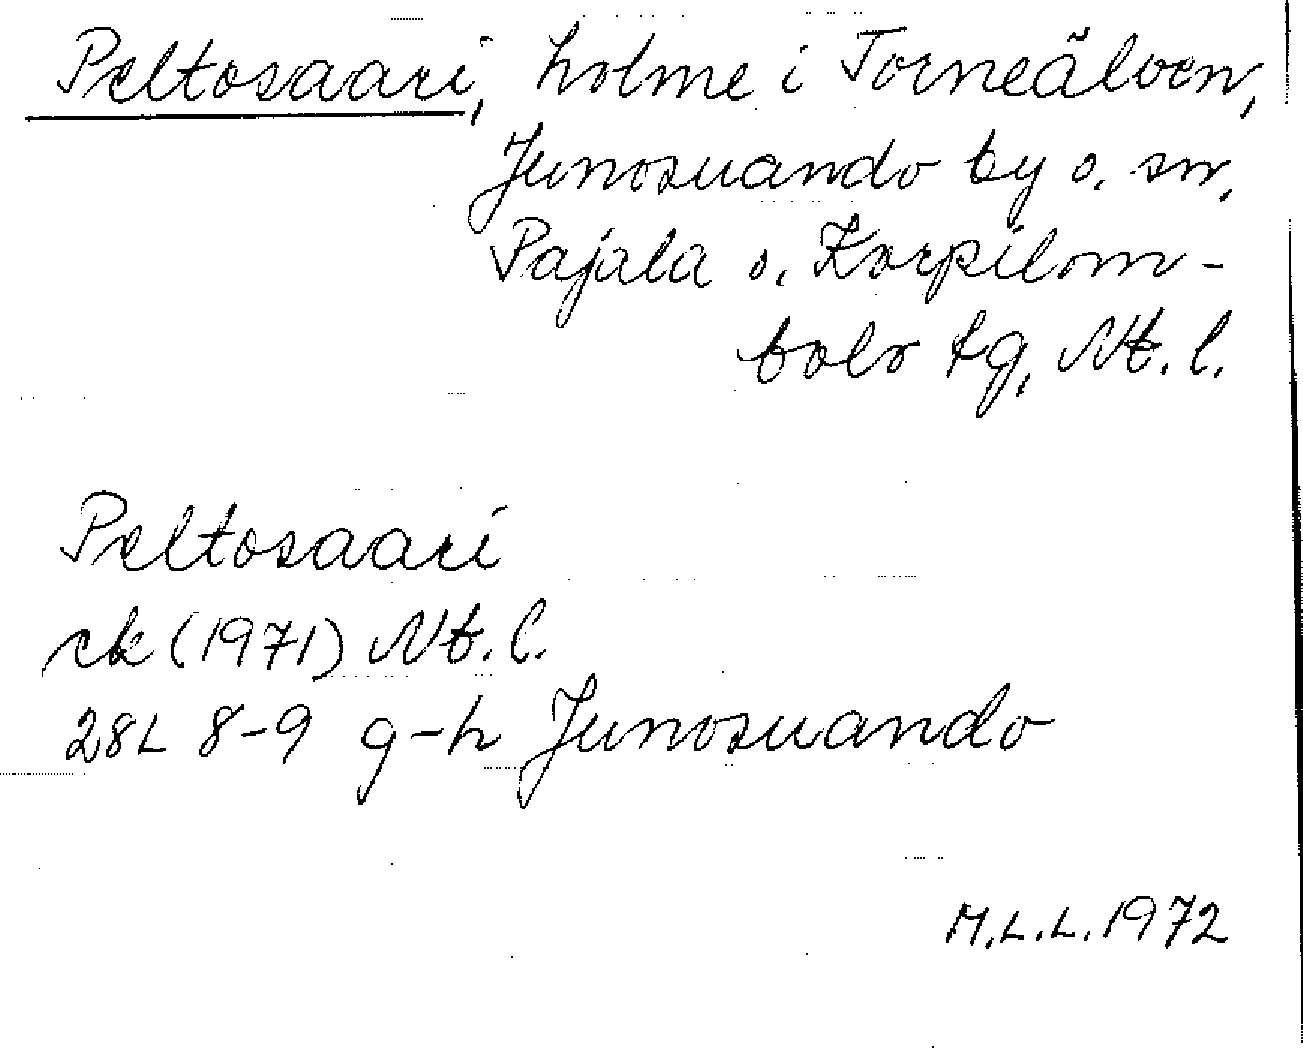 Peltosaari, holme i Torneälven,
Junosuando by o. sn,
Pajala o. Korpilom-
bolo tg, Nb. l.
Peltosaari
ek (1971) Nb. l.
28L 8-9 g-h Junosuando
M.L.L. 1972